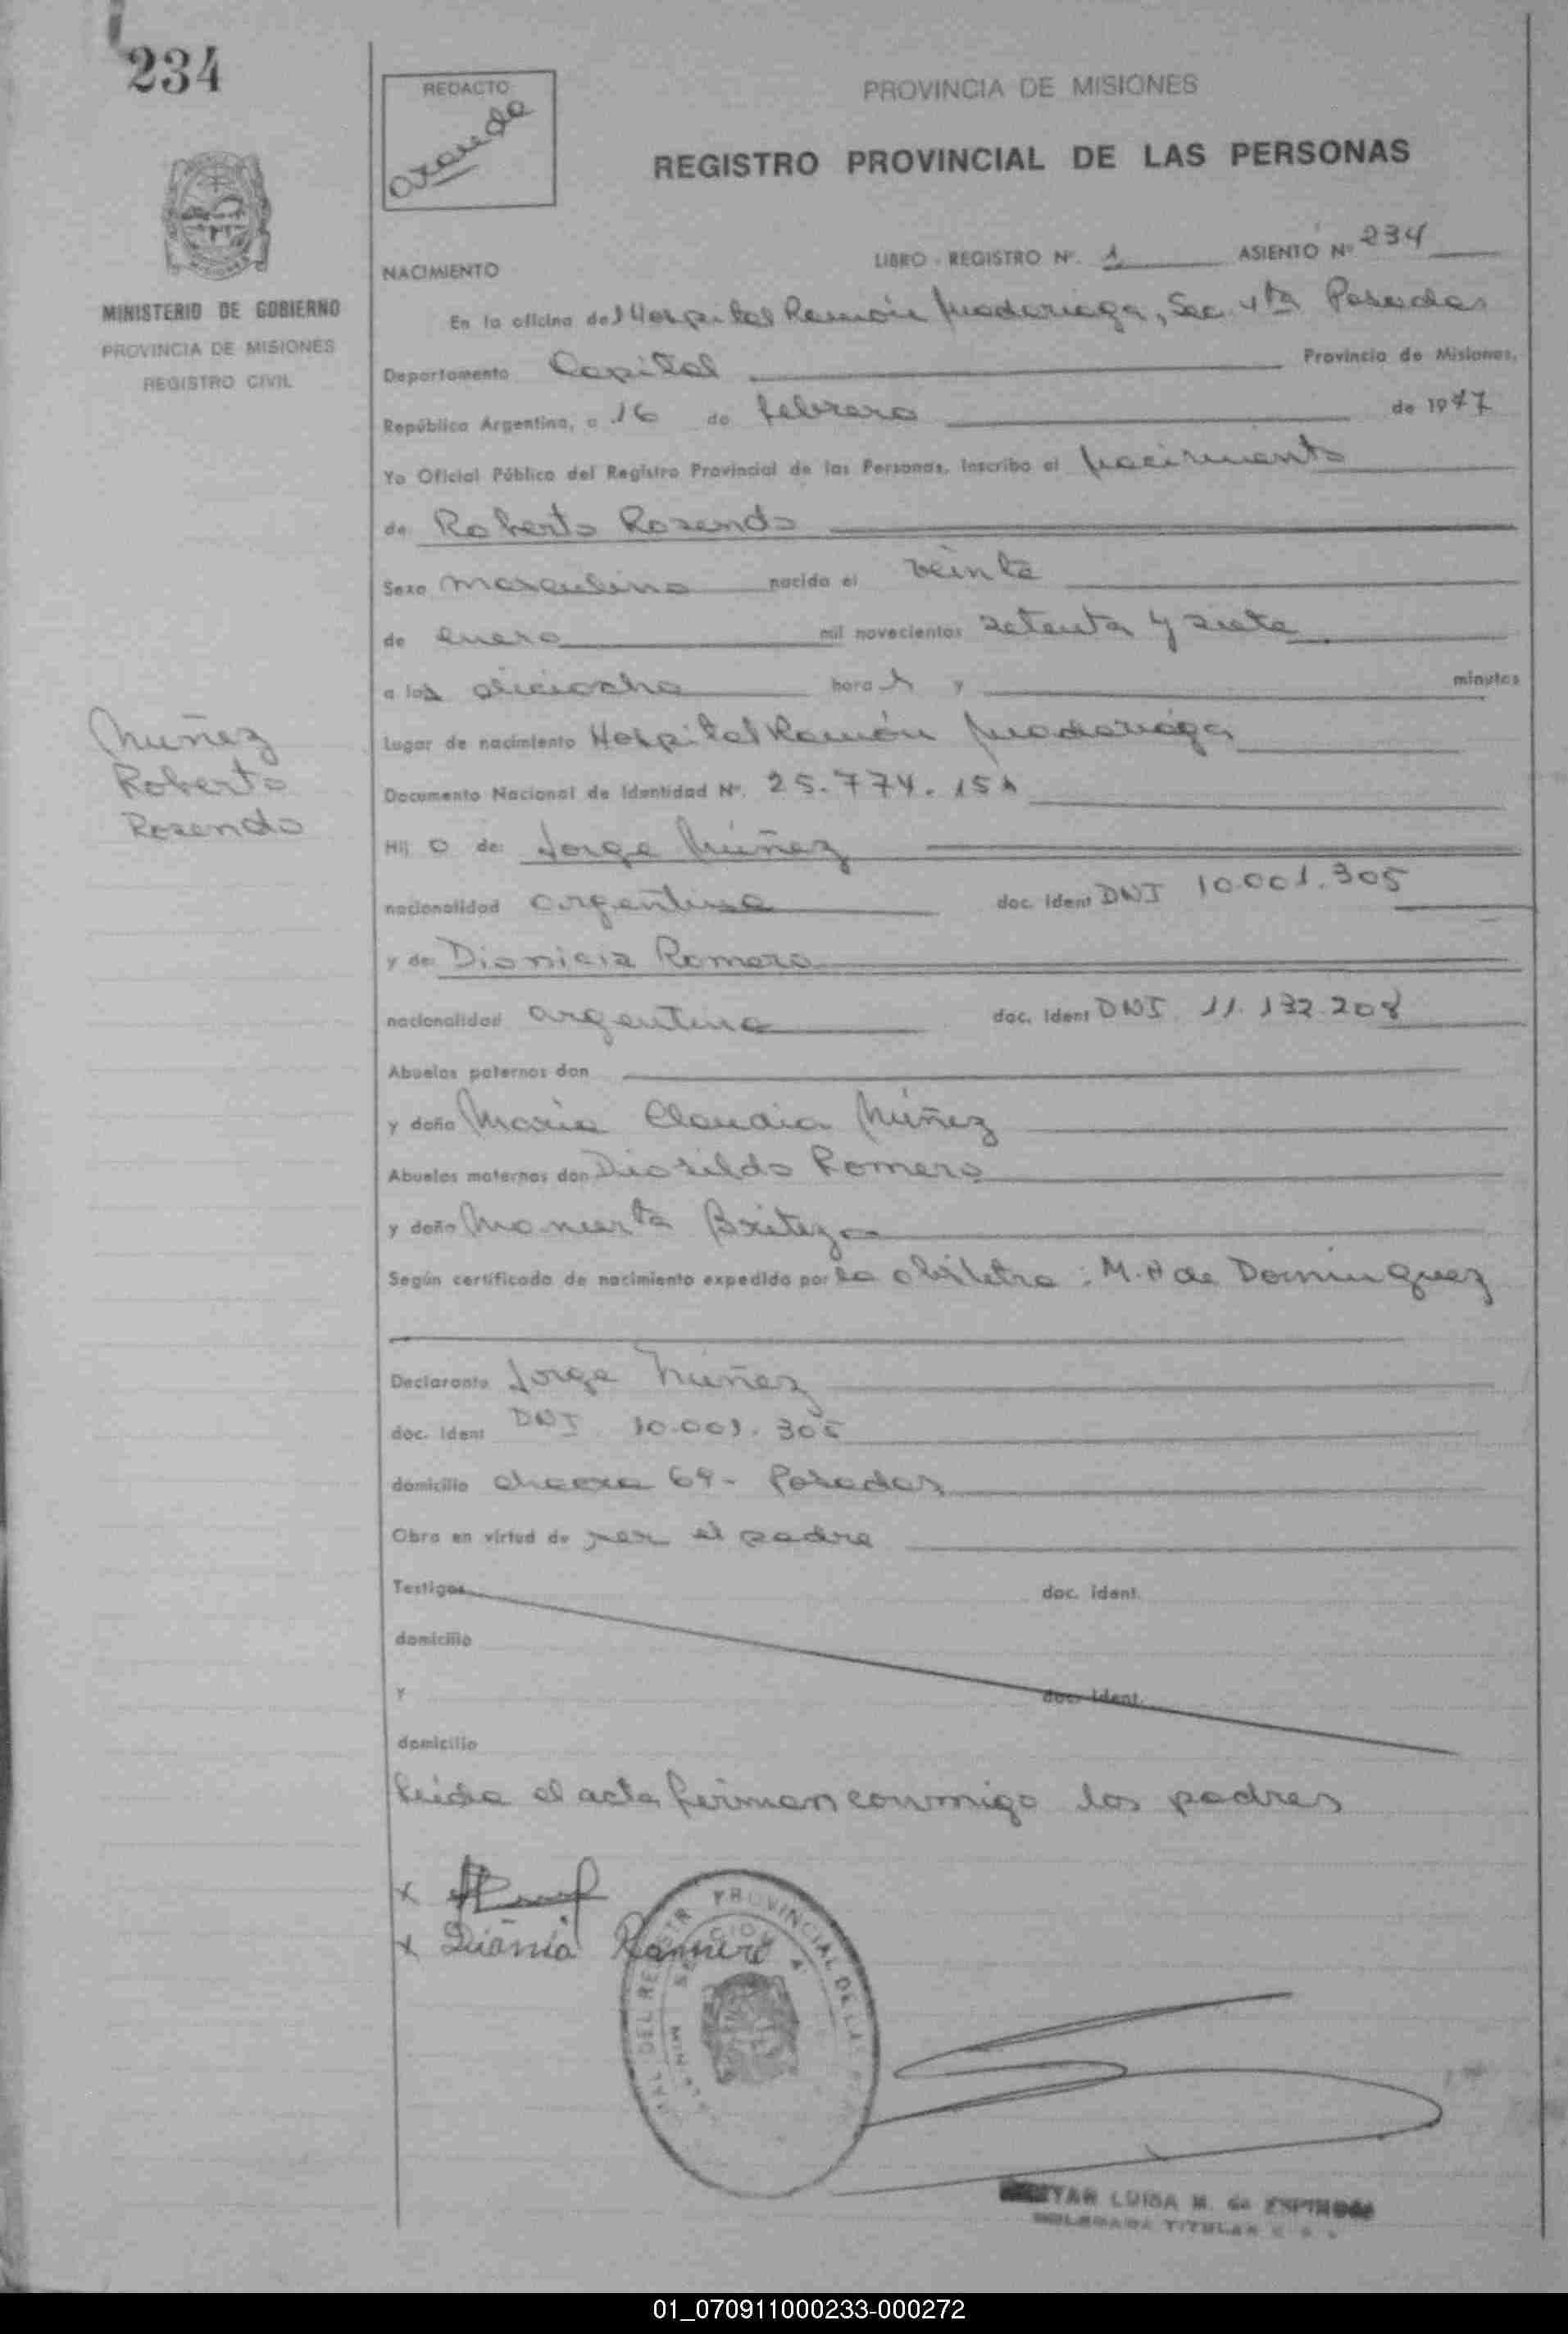 234
REDACTO
Aranda
PROVINCIA DE MISIONES
REGISTRO PROVINCIAL DE LAS PERSONAS
MINISTERIO DE GOBIERNO
PROVINCIA DE MISIONES
REGISTRO CIVIL
NACIMIENTO LIBRO - REGISTRO Nº. 1 ASIENTO Nº 234
En la oficina del Hospital Ramón Madariaga, Sec. 4ta Posadas
Departamento Capital Provincia de Misiones,
República Argentina, a 16 de febrero de 1977
Yo Oficial Público del Registro Provincial de las Personas, Inscribo el nacimiento
de Roberto Rosendo
Sexo masculino nacido el veinte
de enero mil novecientos setenta y siete
a las dieciocho hora s y minutos
Lugar de nacimiento Hospital Ramón Madariaga
Núñez
Roberto
Rosendo
Documento Nacional de Identidad Nº. 25.774.151
Hij o de: Jorge Núñez
nacionalidad argentina doc. Ident DNI 10.001.305
y de: Dionicia Romero
nacionalidad argentina doc. Ident DNI. 11.132.208
Abuelos paternos don
y doña María Claudia Núñez
Abuelos maternos don Romero
y doña Britez
Según certificado de nacimiento expedido por la obstetra: M. H de Dominguez
Declarante Jorge Núñez
doc. Ident DNI 10.001.305
domicilio chacra 69 - Posadas
Obra en virtud de ser el padre
Testigos doc. ident.
domicilio
y doc. ident.
domicilio
leída el acta firman conmigo los padres
x
x Romero
PROVINCIAL DE LAS
SECCION 4
LUISA M. de ESPINOSA
DELEGADA TITULAR
01_070911000233-000272